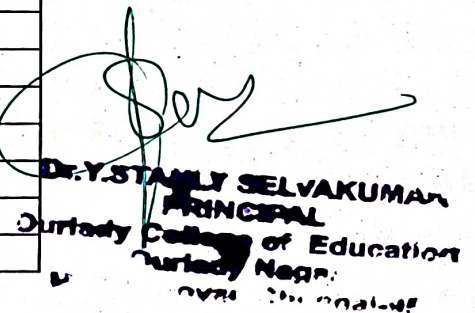 Dr.Y.STANLY SELVAKUMAR
PRINCIPAL
Ourlady College of Education
Ourlady Nagar